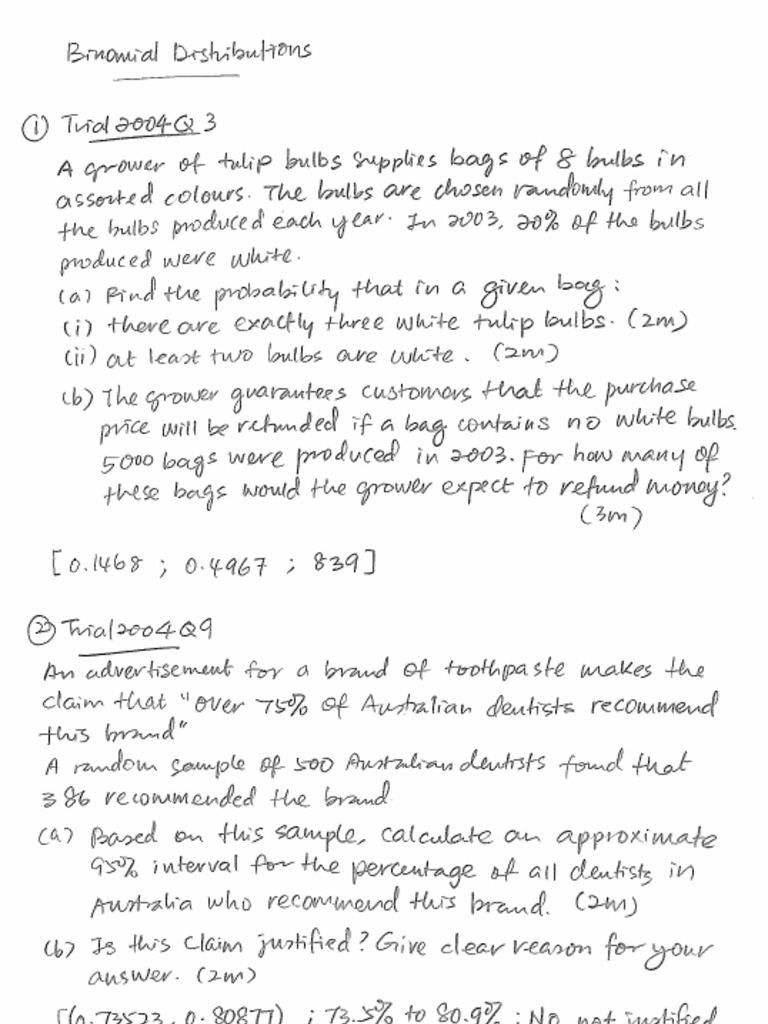 Binomial Distributions
① Trial 2004 Q 3
A grower of tulip bulbs supplies bags of 8 bulbs in
assorted colours. The bulbs are chosen randomly from all
the bulbs produced each year. In 2003, 20% of the bulbs
produced were white.
(a) Find the probability that in a given bag:
(i) there are exactly three white tulip bulbs. (2m)
(ii) at least two bulbs are white. (2m)
(b) The grower guarantees customers that the purchase
price will be refunded if a bag contains no white bulbs.
5000 bags were produced in 2003. For how many of
these bags would the grower expect to refund money?
(3m)
[0.1468 ; 0.4967 ; 839]
② Trial 2004 Q9
An advertisement for a brand of toothpaste makes the
claim that "over 75% of Australian dentists recommend
this brand"
A random sample of 500 Australian dentists found that
386 recommended the brand
(a) Based on this sample, calculate an approximate
95% interval for the percentage of all dentists in
Australia who recommend this brand. (2m)
(b) Is this claim justified? Give clear reason for your
answer. (2m)
[(0.73523, 0.80877) ; 73.5% to 80.9% ; No, not justified